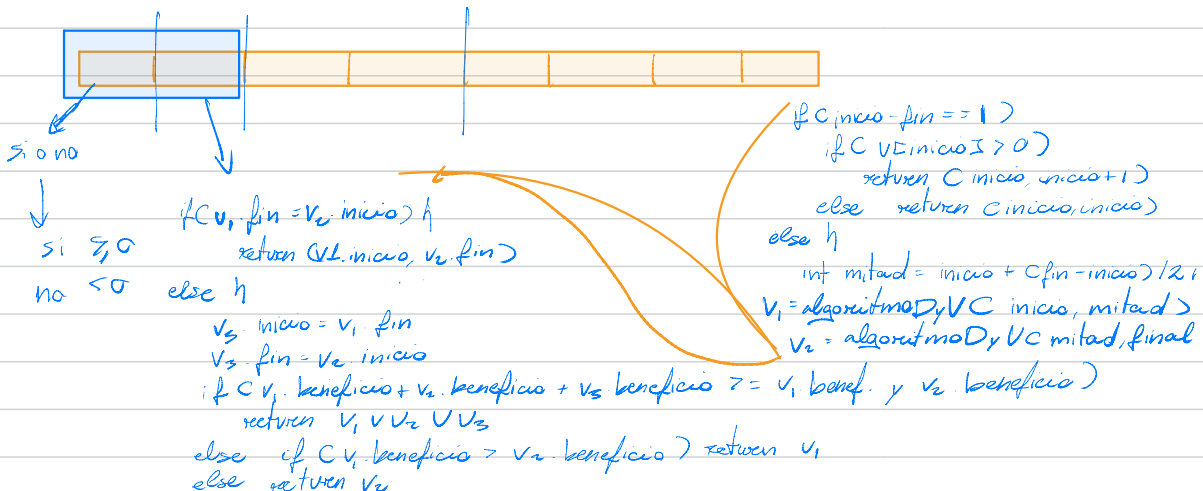 si o no
si ≥ 0
no < 0
if( v1.fin = v2.inicio) {
return (v1.inicio, v2.fin)
else {
v3.inicio = v1.fin
v3.fin = v2.inicio
if( v1.beneficio + v2.beneficio + v3.beneficio >= v1.benef. y v2.beneficio)
return v1 ∪ v2 ∪ v3
else if( v1.beneficio > v2.beneficio) return v1
else return v2
if( inicio - fin == 1)
if( v[inicio] > 0)
return (inicio, inicio+1)
else return (inicio, inicio)
else {
int mitad = inicio + (fin-inicio)/2;
v1 = algoritmoDyV( inicio, mitad)
v2 = algoritmoDyV( mitad, final